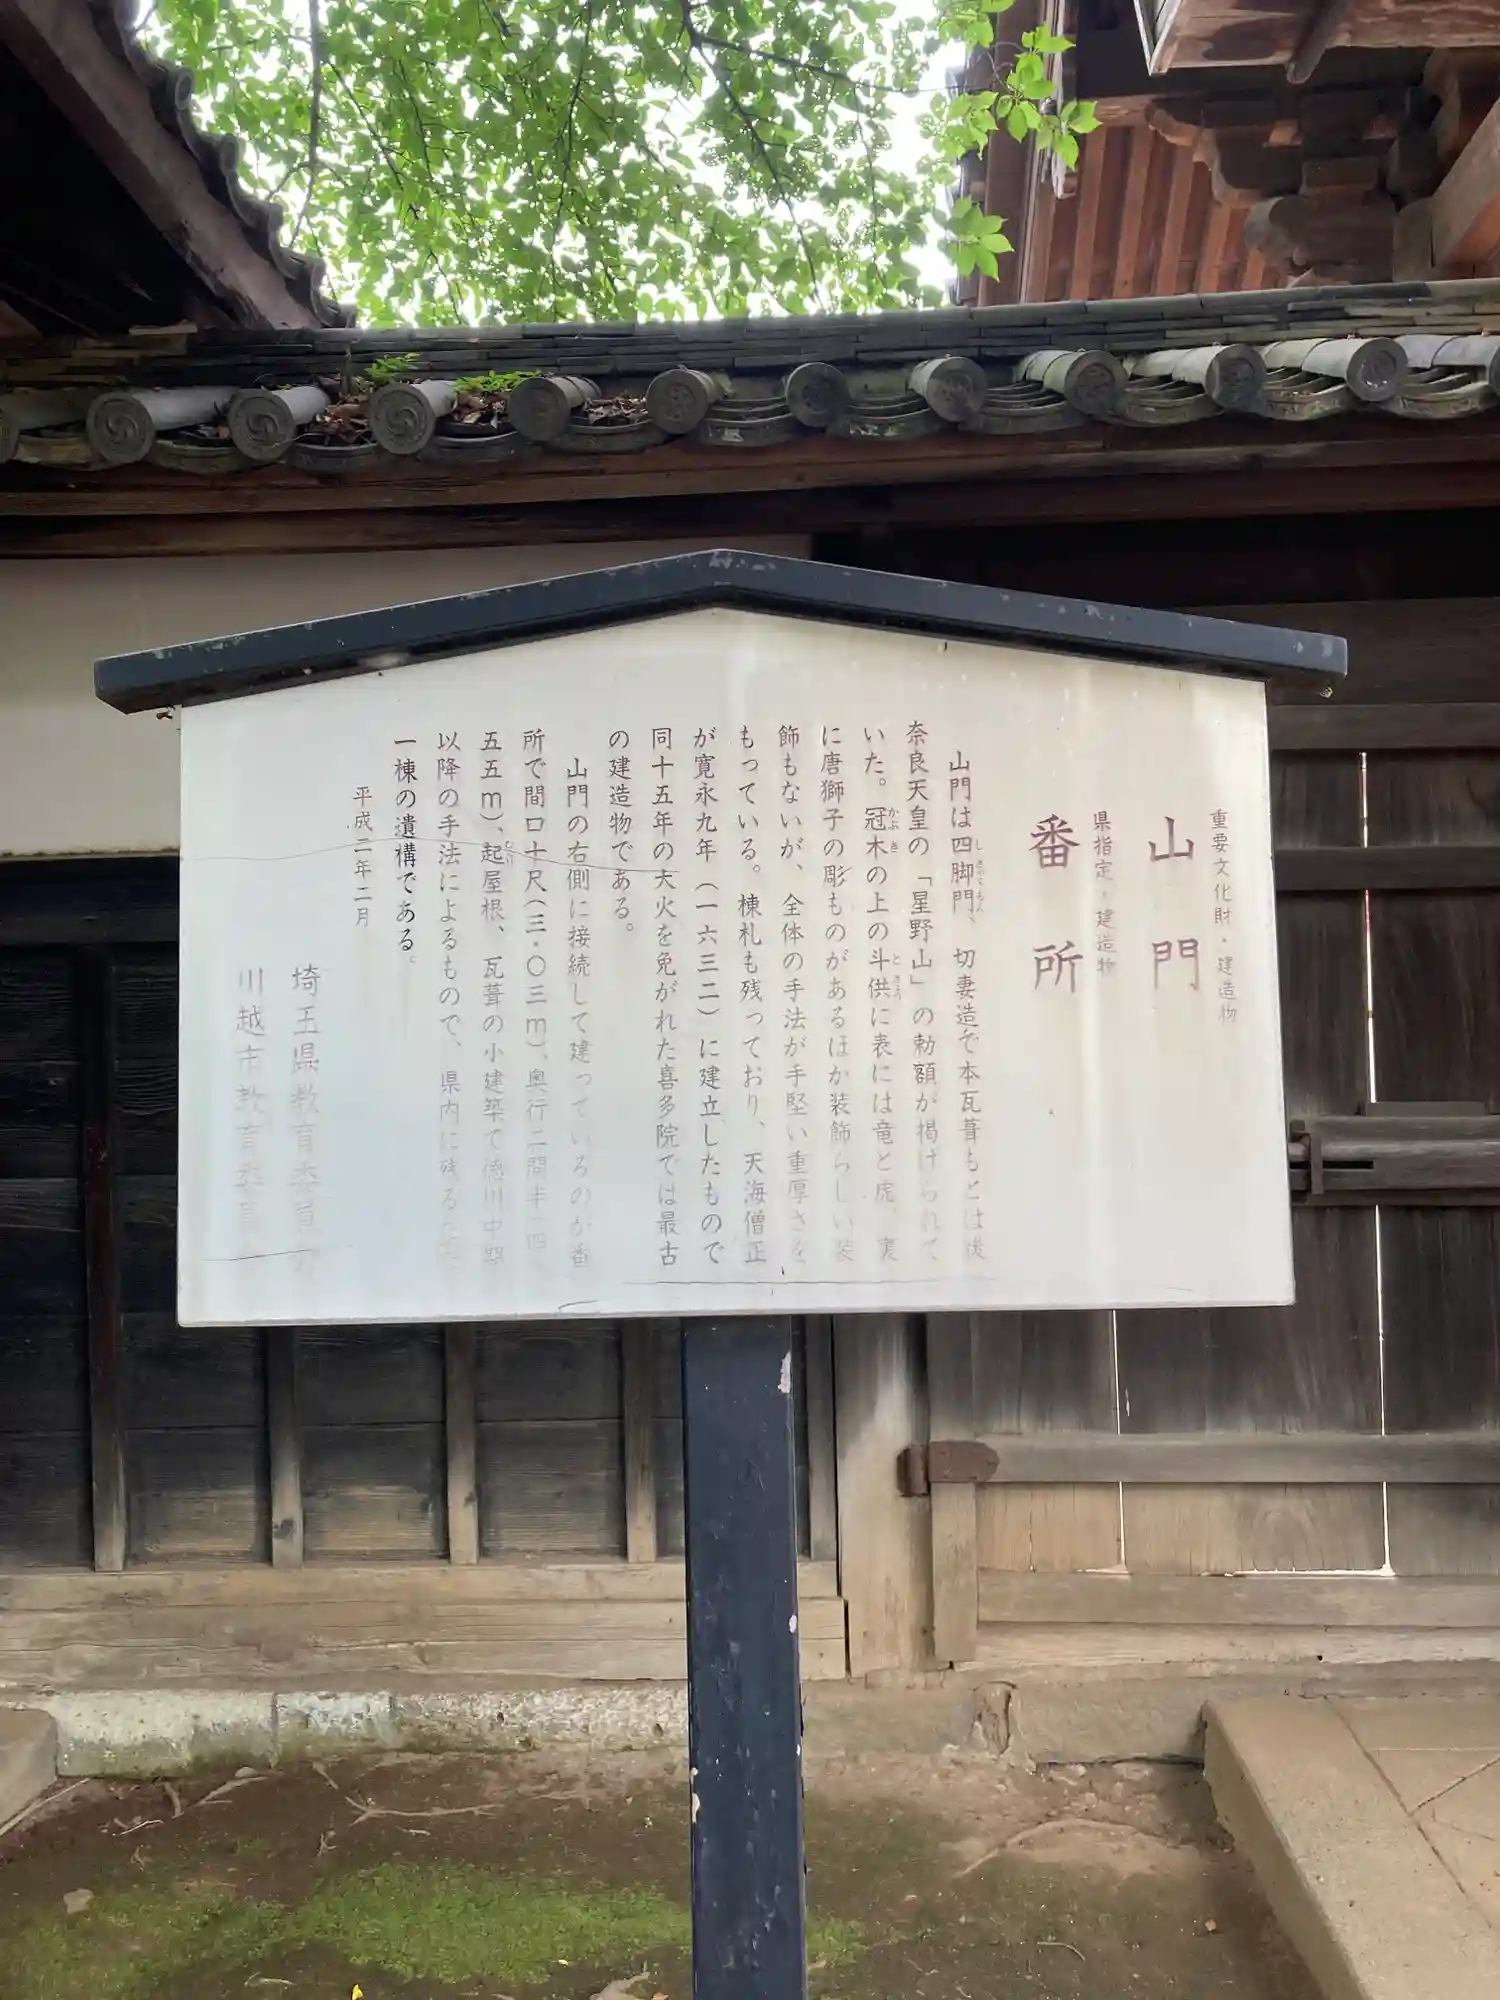 重要文化財・建造物
山門
県指定・建造物
番所
山門は四脚門、切妻造で本瓦葺もとは後
奈良天皇の「星野山」の勅額が掲げられて
いた。冠木の上の斗供に表には竜と虎、裏
に唐獅子の彫ものがあるほか装飾らしい装
飾もないが、全体の手法が手堅い重厚さを
もっている。棟札も残っており、天海僧正
が寛永九年（一六三二）に建立したもので
同十五年の大火を免がれた喜多院では最古
の建造物である。
山門の右側に接続して建っているのが番
所で間口十尺（三・〇三ｍ）、奥行二間半（四・
五五ｍ）、起屋根、瓦葺の小建築で徳川中期
以降の手法によるもので、県内に残る
一棟の遺構である。
平成二年二月
埼玉県教育委員会
川越市教育委員会